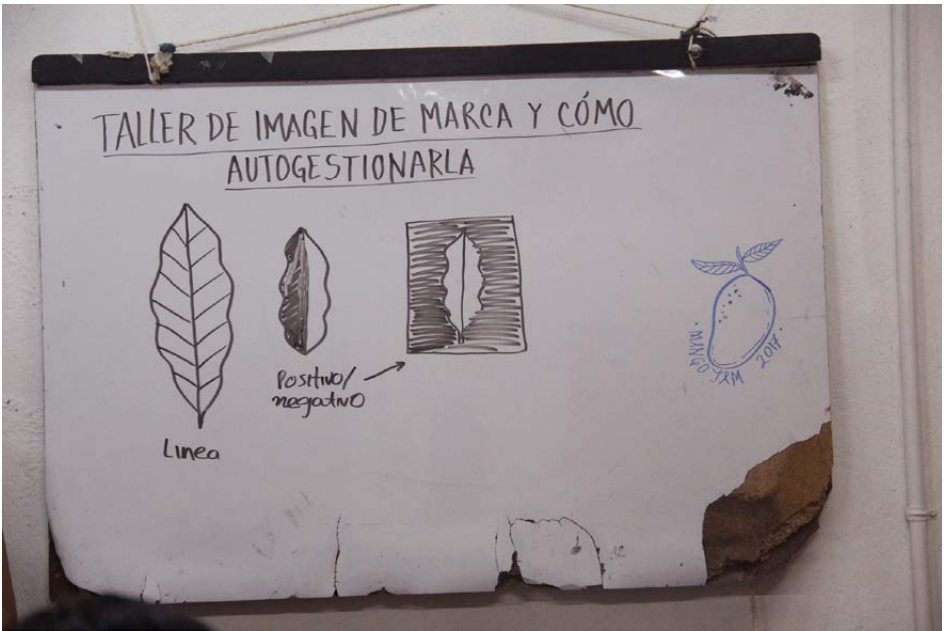 TALLER DE IMAGEN DE MARCA Y CÓMO
AUTOGESTIONARLA
Positivo/
negativo
Linea
· MANGO JAM 2017 ·